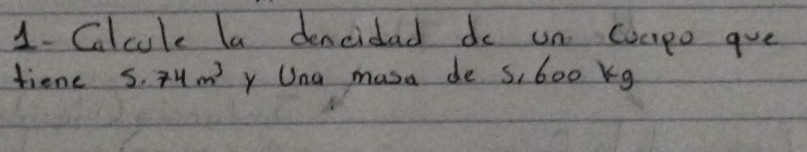 1- Calcule la dencidad de un Cuerpo que
tiene 5.74 m³ y Una masa de 5,600 kg